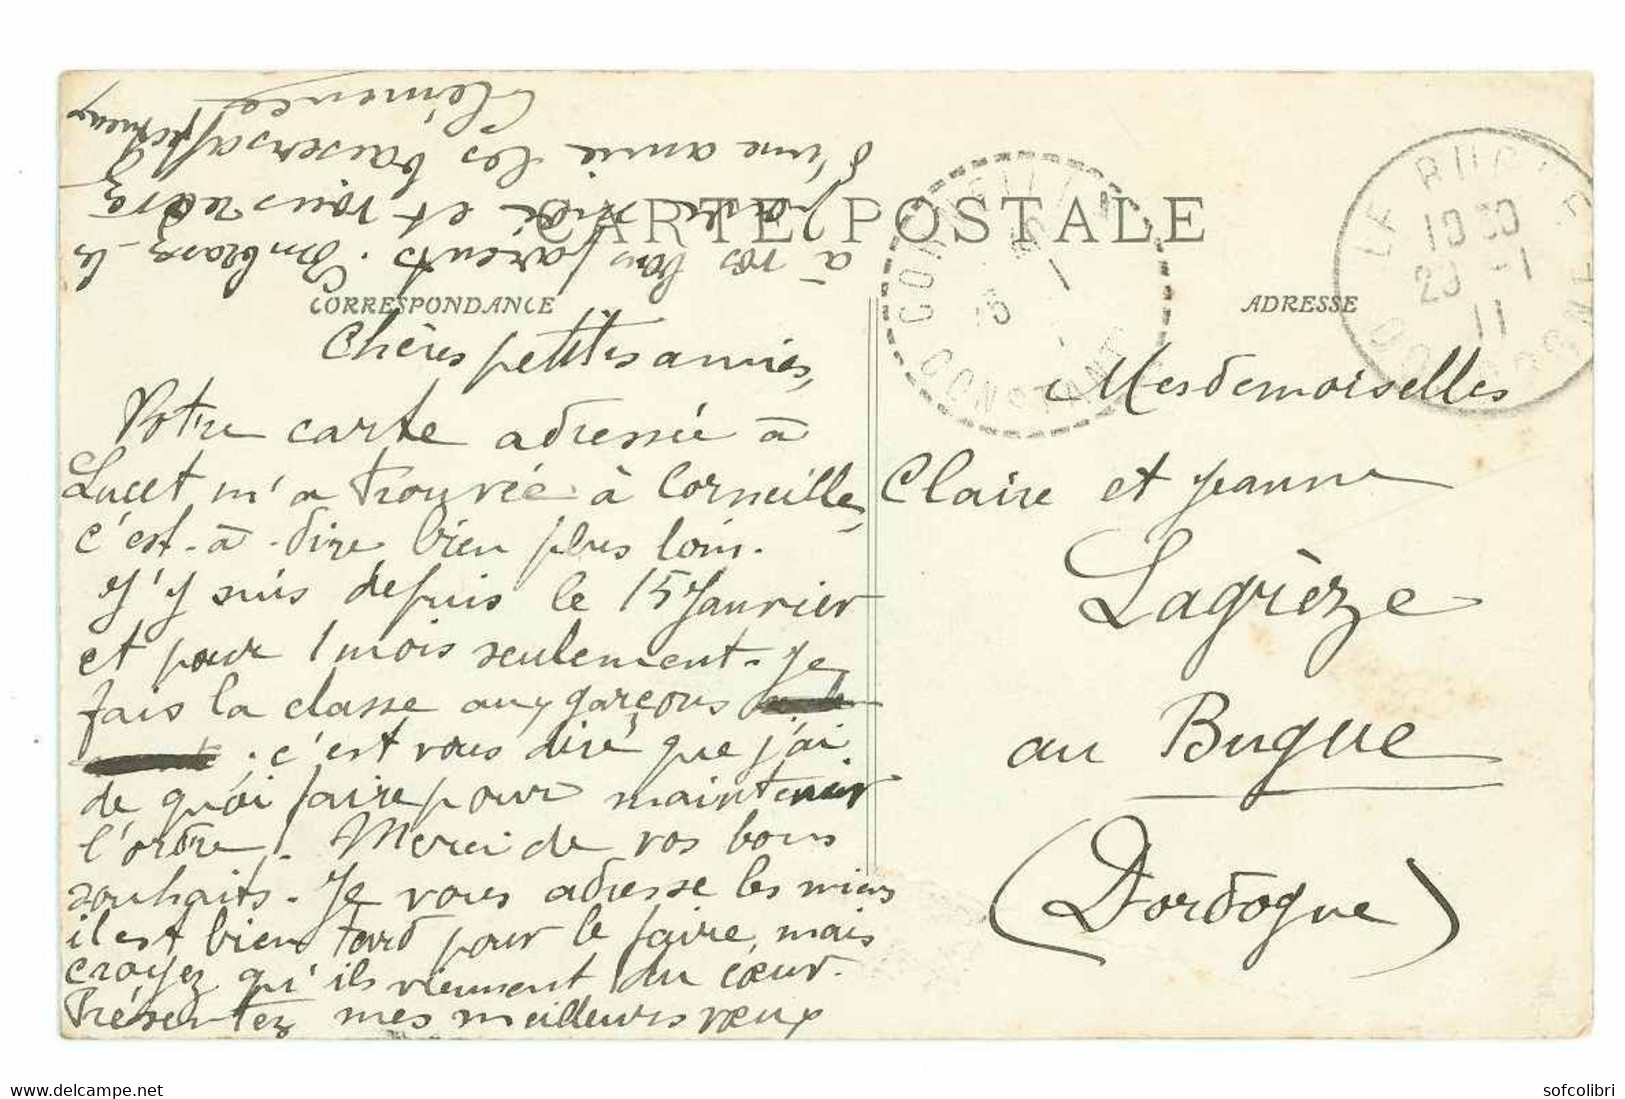 CARTE POSTALE
CORRESPONDANCE
Chères petites amies,
Votre carte adressée à
Lucet m'a trouvée à Corneille,
c'est-à-dire bien plus loin.
J'y suis depuis le 15 Janvier
et pour 1 mois seulement. Je
fais la classe aux garçons
; c'est vous dire que j'ai
de quoi faire pour maintenir
l'ordre! Merci de vos bons
souhaits. Je vous adresse les miens
il est bien tard pour le faire, mais
croyez qu'ils viennent du cœur.
Présentez mes meilleurs vœux
à vos bons parents. Embrassez-les
de ma part et vous recevez
d'une amie les baisers affectueux
Clémence
ADRESSE
Mesdemoiselles
Claire et Jeanne
Lagrèze
au Bugue
(Dordogne)
CONSTANT
LE BUGUE
DORDOGNE
-1
11
www.delcampe.net
sofcolibri